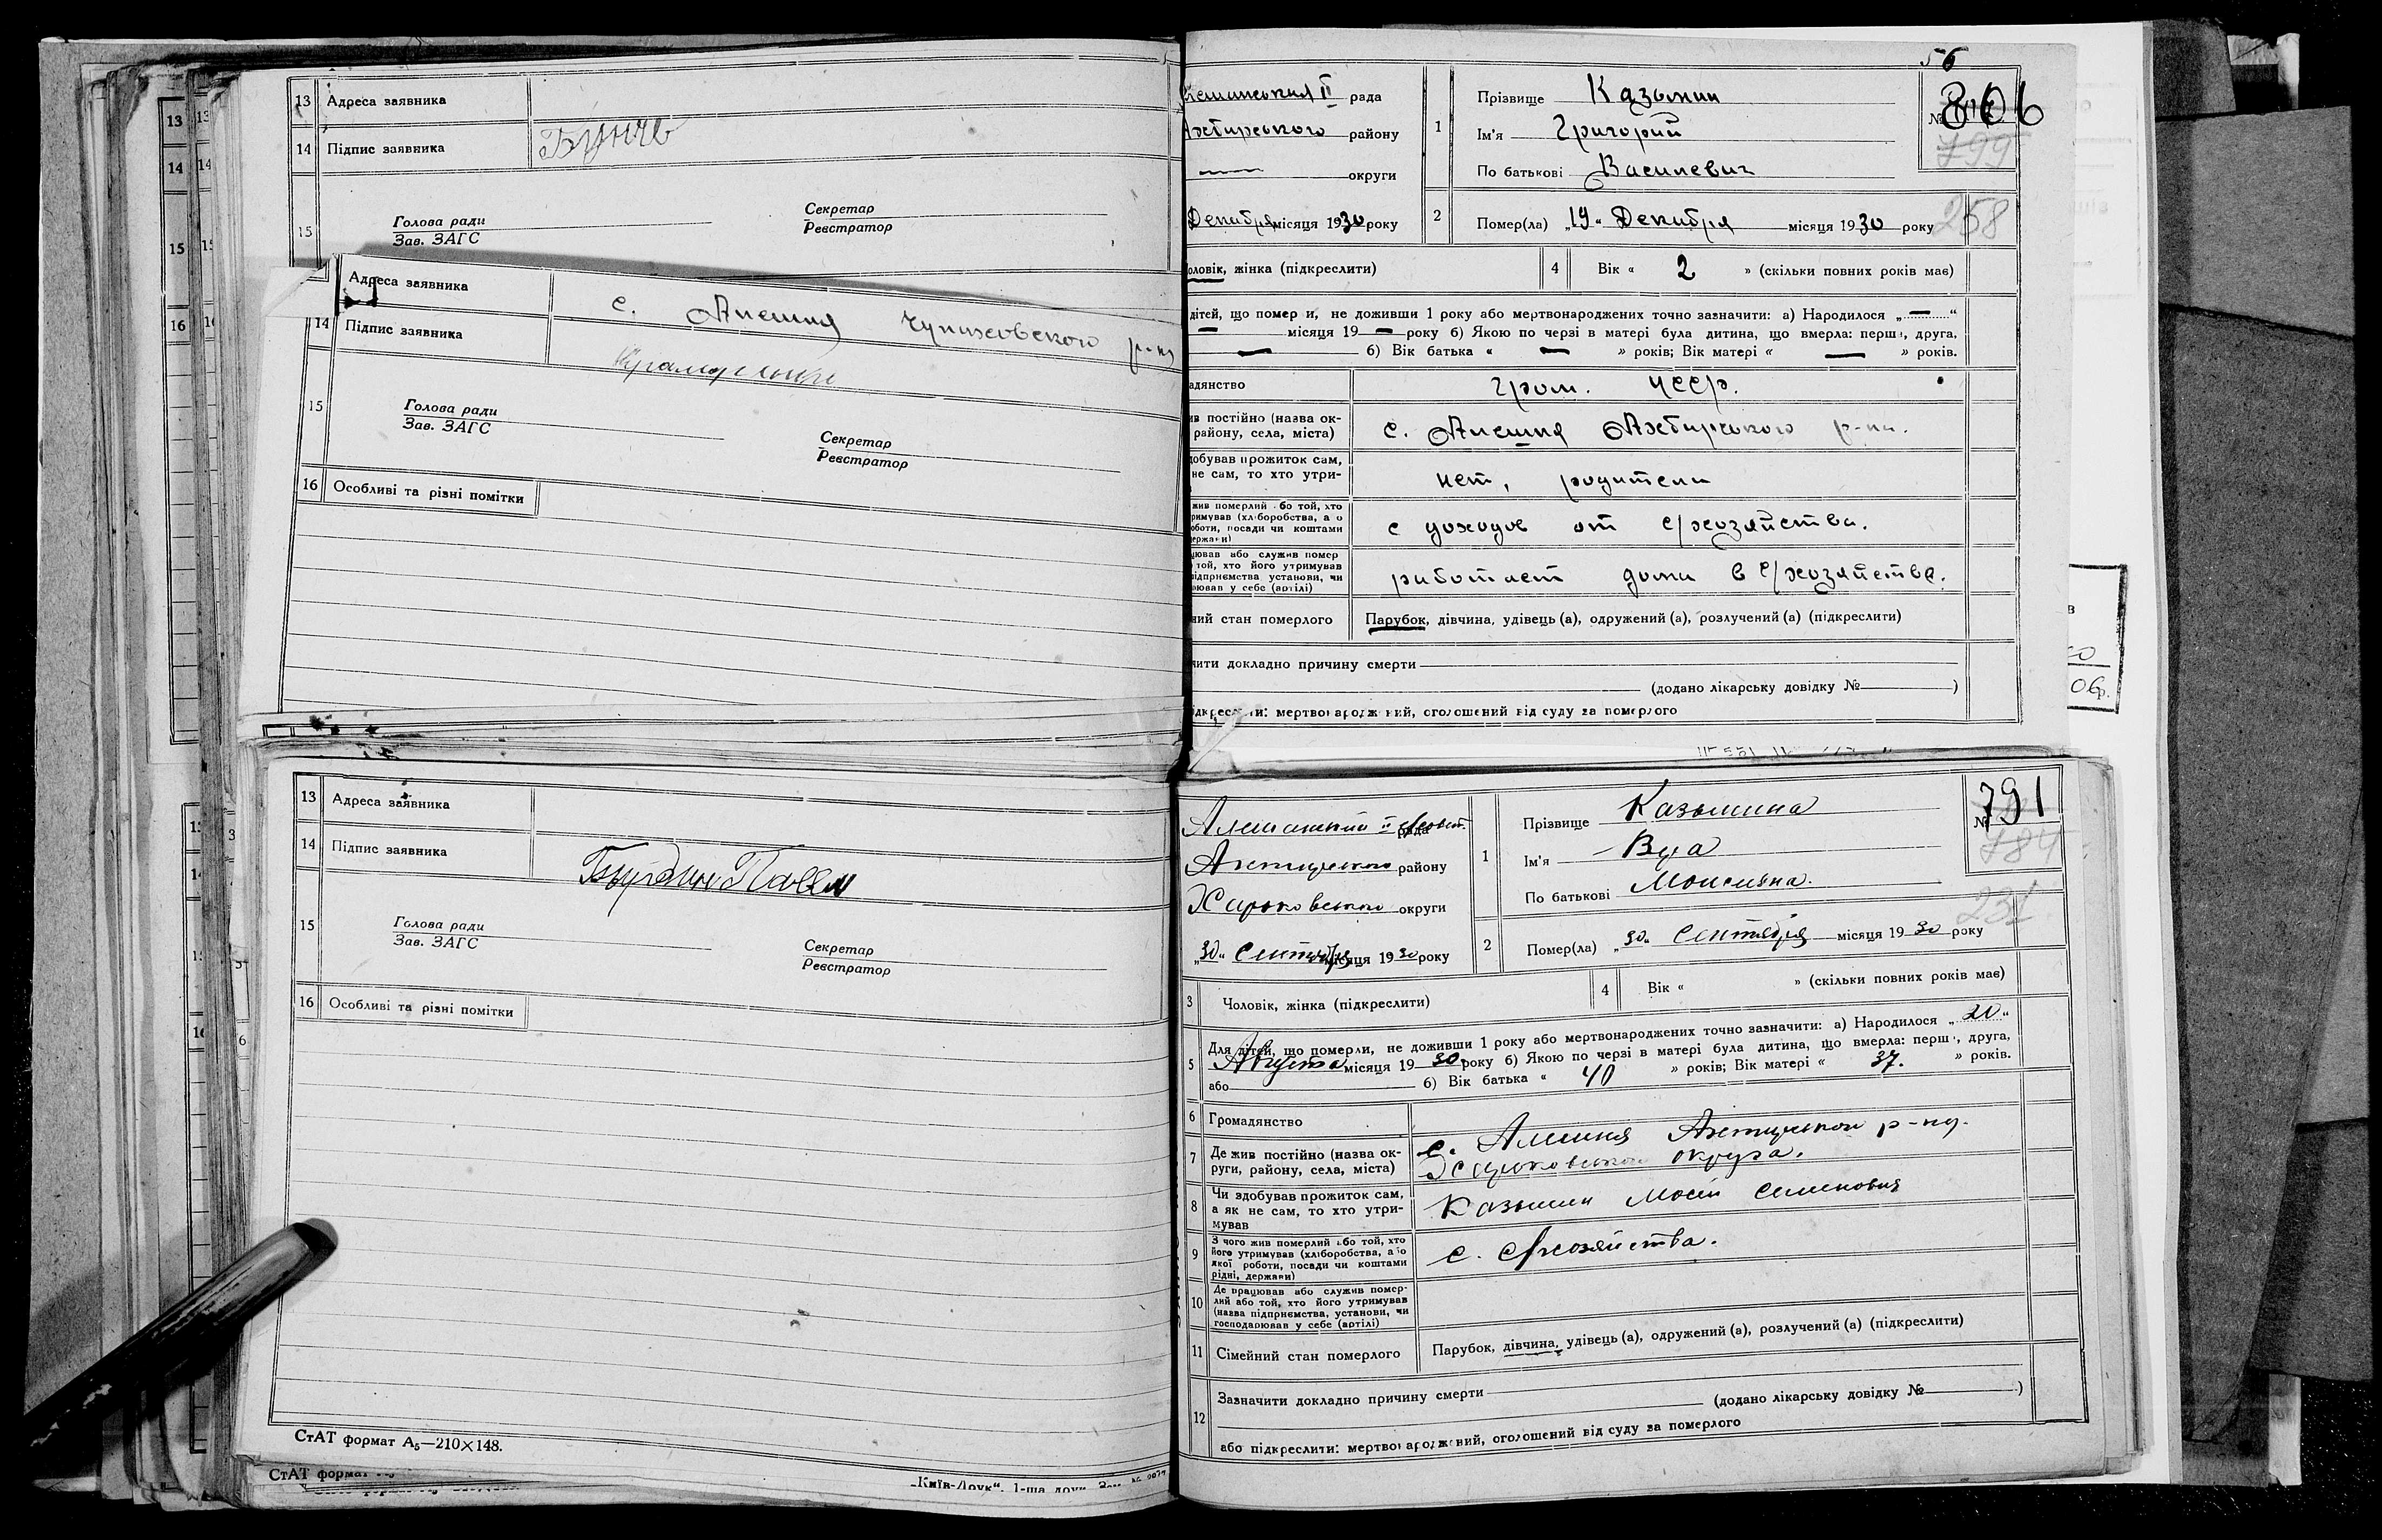 13 Адреса заявника
14 Підпис заявника
15 Голова ради
Зав. ЗАГС
Секретар
Реєстратор
Адреса заявника с. Алешня Чупаховского р-на
14 Підпис заявника
15 Голова ради
Зав. ЗАГС
Секретар
Реєстратор
16 Особливі та різні помітки
13 Адреса заявника
14 Підпис заявника
15 Голова ради
Зав. ЗАГС
Секретар
Реєстратор
16 Особливі та різні помітки
СтАТ формат А₅—210×148.
СтАТ формат
„Київ-Друк“. 1-ша друк.
56
рада
району
округи
Декабря місяця 1930 року
1 Прізвище Казьмин
Ім'я Григорий
По батькові Василевич
№ 806
799
258
2 Помер(ла) „19“ Декабря місяця 1930 року
чоловік, жінка (підкреслити)
4 Вік « 2 » (скільки повних років має)
дітей, що помер и, не доживши 1 року або мертвонароджених точно зазначити: а) Народилося „—“
— місяця 19 — року б) Якою по черзі в матері була дитина, що вмерла: перш , друга,
— б) Вік батька « — » років; Вік матері « — » років.
адянство гром. УССР.
ив постійно (назва ок-
району, села, міста) с. Алешня Ахтирського р-на.
добував прожиток сам,
не сам, то хто утри- нет, родители
жив померлий або той, хто
римував (хліборобства, а о
оботи, посади чи коштами
ержави) с доходов от с/хозяйства.
ював або служив помер
той, хто його утримував
ідприємства установи, чи
рював у себе (артілі) работает дома в с/хозяйстве.
ний стан померлого Парубок, дівчина, удівець (а), одружений (а), розлучений (а) (підкреслити)
чити докладно причину смерти
(додано лікарську довідку № )
ідкреслити: мертвонароджений, оголошений від суду за померлого
рада
району
Харьковской округи
„30“ Сентября місяця 1930 року
1 Прізвище Казьмина
Ім'я Вера
По батькові Моисеевна.
№ 791
784
231
2 Помер(ла) „30“ Сентября місяця 1930 року
3 Чоловік, жінка (підкреслити)
4 Вік « » (скільки повних років має)
5 Для дітей, що померли, не доживши 1 року або мертвонароджених точно зазначити: а) Народилося „20“
Августа місяця 1930 року б) Якою по черзі в матері була дитина, що вмерла: перш , друга,
або б) Вік батька « 40 » років; Вік матері « 37. » років.
6 Громадянство
7 Де жив постійно (назва ок-
руги, району, села, міста) с. Алешня Ахтырского р-на.
Харьковского округа.
8 Чи здобував прожиток сам,
а як не сам, то хто утри-
мував Казьмин Мосей Семенович
9 З чого жив померлий або той, хто
його утримував (хліборобства, або
якої роботи, посади чи коштами
рідні, держави) с. с/хозяйства.
10 Де працював або служив помер-
лий або той, хто його утримував
(назва підприємства, установи, чи
господарював у себе (артілі)
11 Сімейний стан померлого Парубок, дівчина, удівець (а), одружений (а), розлучений (а) (підкреслити)
12 Зазначити докладно причину смерти
(додано лікарську довідку № )
або підкреслити: мертвонароджений, оголошений від суду за померлого